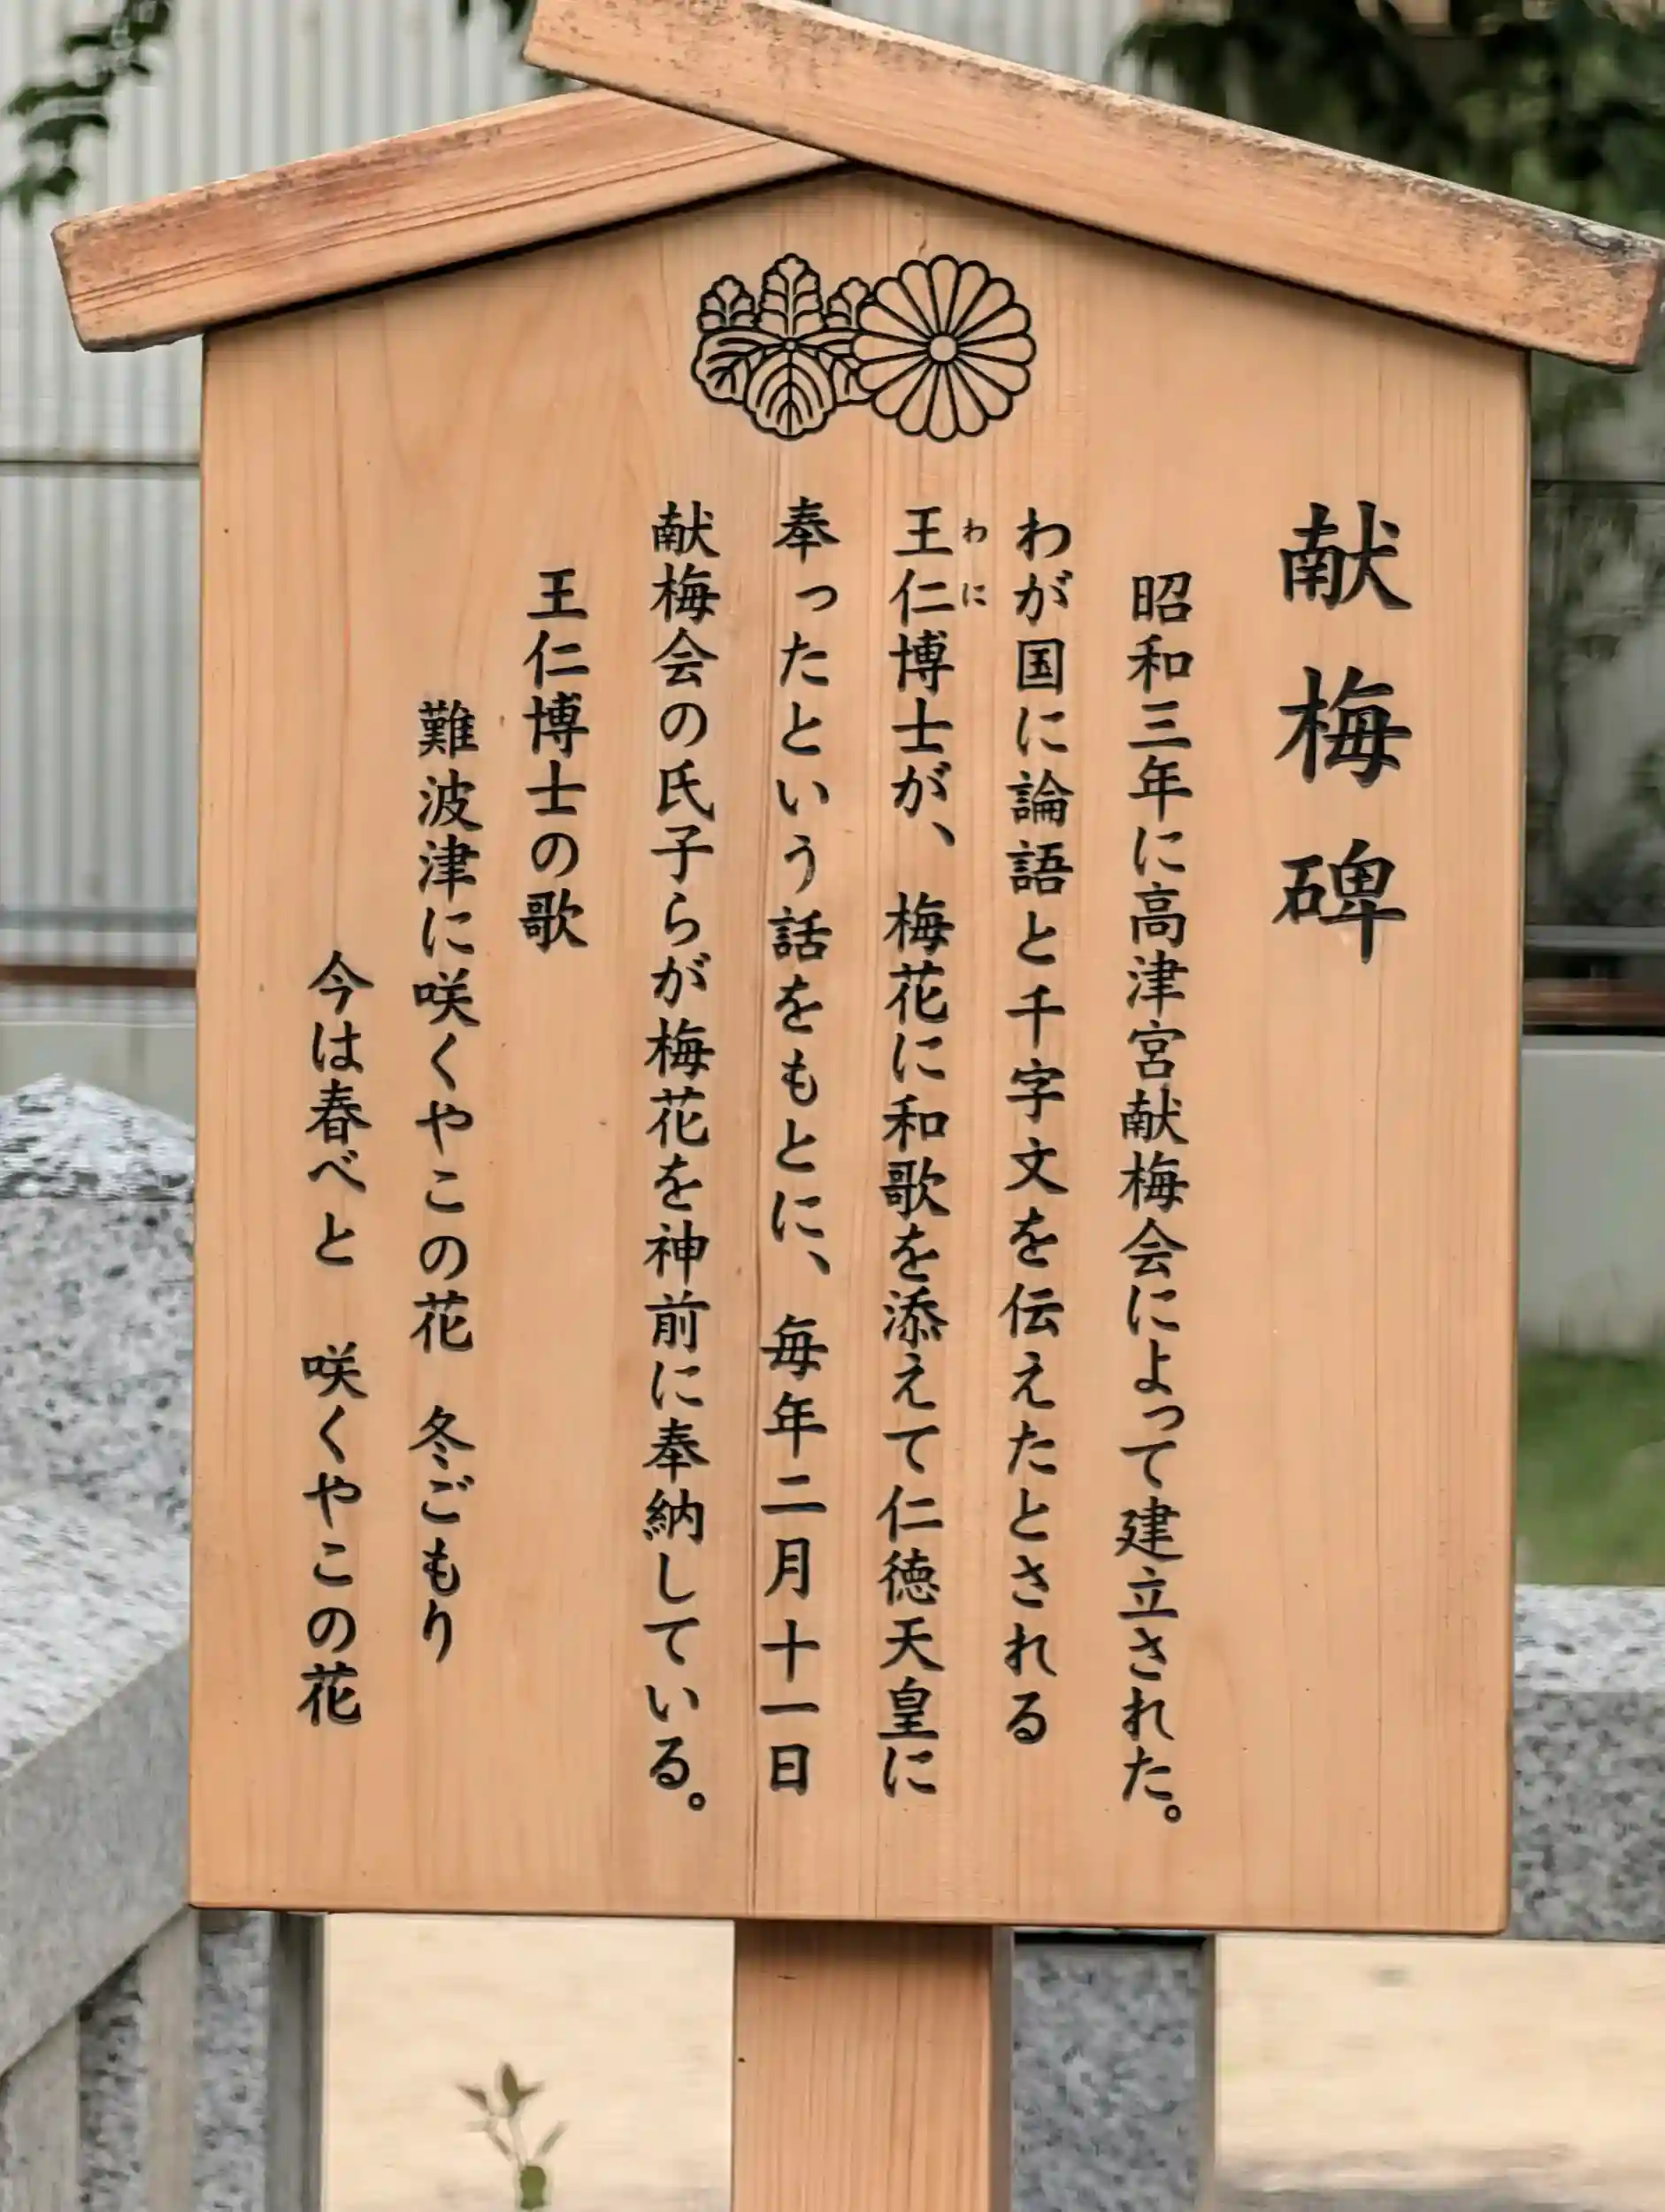 献梅碑
昭和三年に高津宮献梅会によって建立された。
わが国に論語と千字文を伝えたとされる
わに
王仁博士が、梅花に和歌を添えて仁徳天皇に
奉ったという話をもとに、毎年二月十一日
献梅会の氏子らが梅花を神前に奉納している。
王仁博士の歌
難波津に咲くやこの花　冬ごもり
今は春べと　咲くやこの花